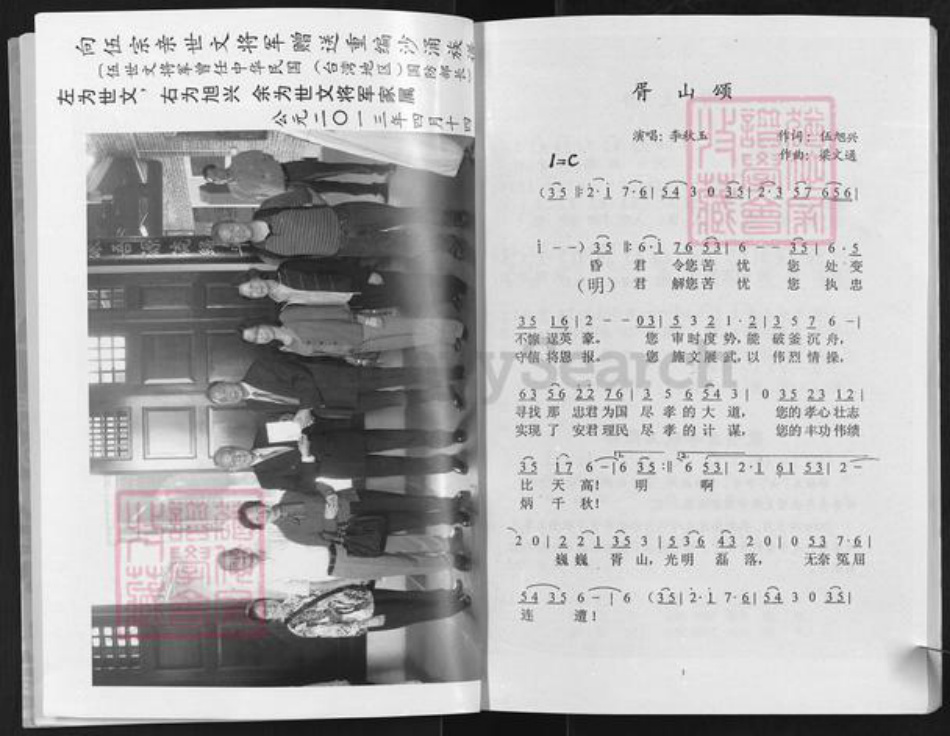 向伍宗亲世文将军赠送重编沙涌族
（伍世文将军曾任中华民国（台湾地区）国防部长
左为世文，右为旭兴 余为世文将军家属
公元二〇一三年四月十四
胥山颂
演唱：李秋玉 作词：伍旭兴
1=C 作曲：梁文通
(35 ‖: 2·i 7·6| 54 3 0 35| 2·3 57 656|
i - -) 35 ‖: 6·i 76 53| 6 - - 35| 6·5
昏 君 令您苦 忧 您 处变
(明) 君 解您苦 忧 您 执忠
35 16|2 - - 03| 5 32 1·2|3 5 7 6 -|
不惊 谋英 豪。 您 审时度 势，能 破釜沉舟，
守信 将恩 报。 您 施文展 武，以 伟烈情操，
63 56 22 76| 3 5 6 54 3| 0 35 23 12|
寻找 那 忠君为国 尽 孝的大 道， 您的孝心壮志
实现 了 安君理民 尽 孝的计 谋， 您的丰功伟绩
35 i7 6 -|6 35 :‖ 6 53| 2·1 61 53| 2 -
比 天 高！ 明 啊
炳 千 秋！
2 0| 2 2 i 35 3| 536 43 2 0| 0 53 7·6|
巍 巍 胥 山，光明 磊 落， 无奈 冤屈
54 35 6 -| 6 (35| 2·i 7·6| 54 3 0 35|
连 遭！
1